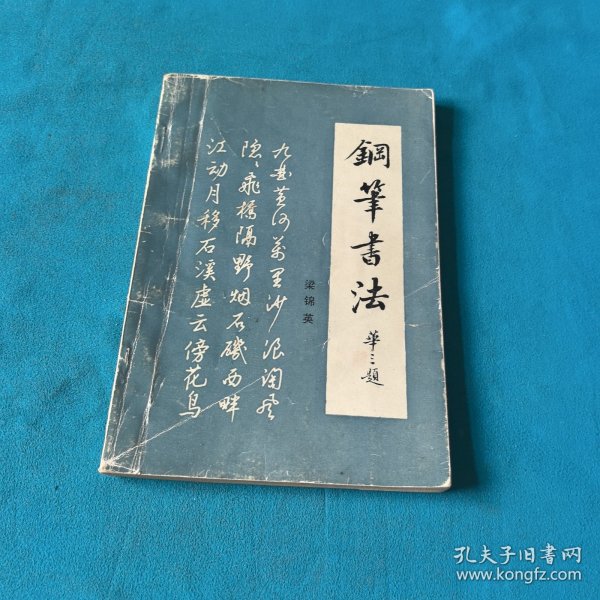 鋼筆書法
華三題
梁锦英
九曲黄河万里沙浪淘风
隐隐飛橋隔野烟石磯西畔
江动月移石溪虚云傍花鸟
孔夫子旧書网
www.kongfz.com